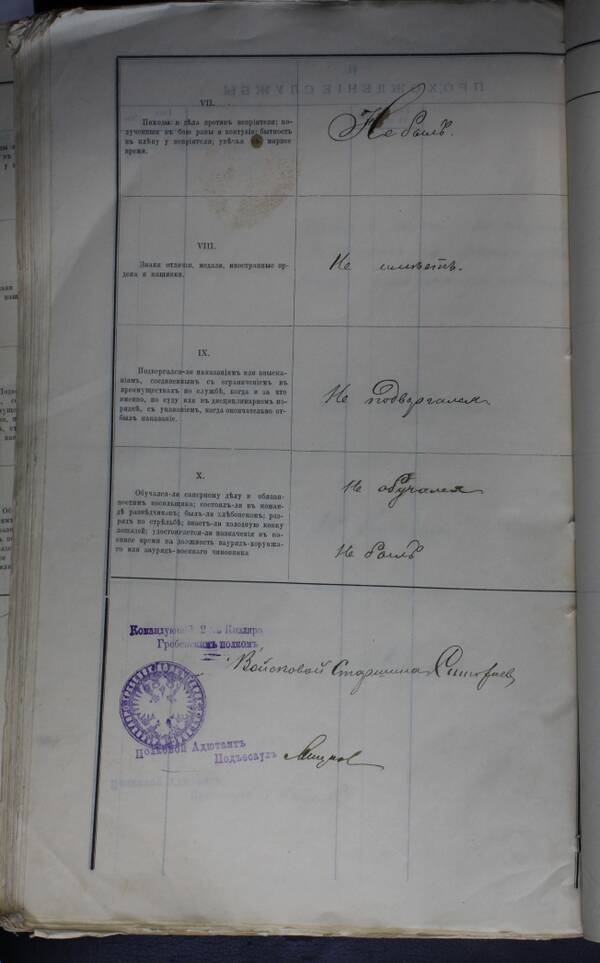 VII.
Походы и дѣла противъ непріятеля; по-
лученныя въ бою раны и контузіи; бытность
въ плѣну у непріятеля; увѣчья въ мирное
время.
Не былъ.
VIII.
Знаки отличія, медали, иностранные ор-
дена и нашивки.
Не имѣетъ.
IX.
Подвергался-ли наказаніямъ или взыска-
ніямъ, соединеннымъ съ ограниченіемъ въ
преимуществахъ по службѣ, когда и за что
именно, по суду или въ дисциплинарномъ по-
рядкѣ, съ указаніемъ, когда окончательно от-
былъ наказаніе.
Не подвергался
X.
Обучался-ли саперному дѣлу и обязан-
ностямъ носильщика; состоялъ-ли въ коман-
дѣ развѣдчиковъ; былъ-ли хлѣбопекомъ; раз-
рядъ по стрѣльбѣ; знаетъ-ли холодную ковку
лошадей; удостоивается-ли назначенія въ во-
енное время на должность зауряд-хорунжа-
го или заурядъ-военнаго чиновника
Не обучался
Не былъ
Командующій 2 Кизляро
Гребенскимъ полкомъ,
Войсковой Старшина
Полковой Адютантъ
Подъесаулъ
ПРОХОЖДЕНІЕ СЛУЖБЫ